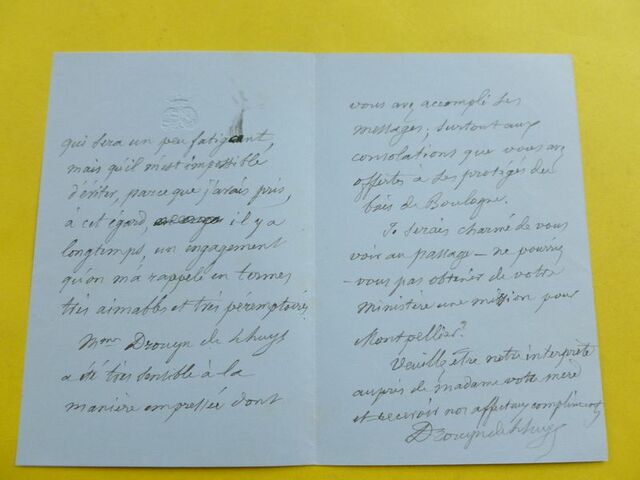 qui sera un peu fatigant,
mais qu'il m'est impossible
d'éviter, parce que j'avais pris,
à cet égard, il y a
longtemps, un engagement
qu'on m'a rappelé en termes
très aimables et très peremptoires.
Mme Drouyn de Lhuys
a été très sensible à la
manière empressée dont
vous avez accompli ses
messages, surtout aux
consolations que vous avez
offertes à ses protégés du
bois de Boulogne.
Je serais charmé de vous
voir au passage – ne pourriez
-vous pas obtenir de votre
ministère une mission pour
Montpellier?
Veuillez être notre interprète
auprès de madame votre mère
et recevoir nos affectueux compliments
Drouyn de Lhuys